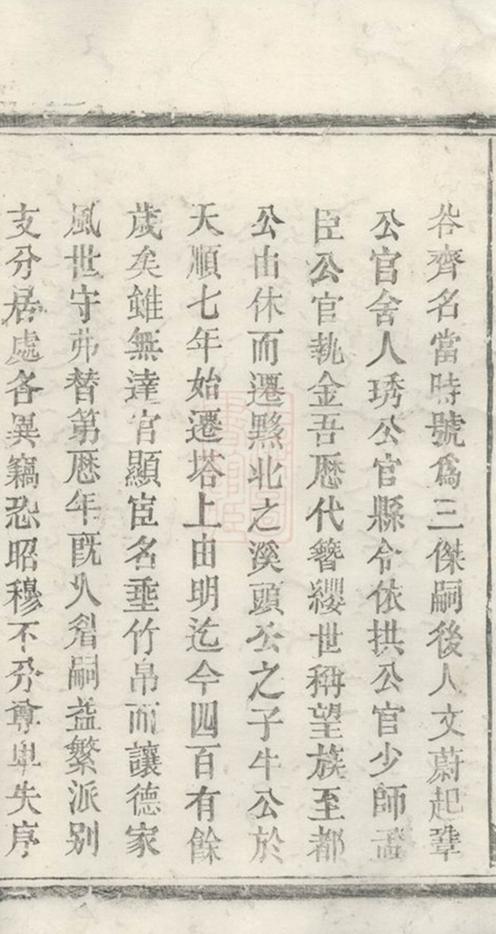 谷齊名當時號爲三傑嗣後人文蔚起鞏
公官舍人琇公官縣令依拱公官少師藎
臣公官執金吾歴代簪纓世稱望族至都
公由休而遷黟北之溪頭厷之子牛公於
天順七年始遷塔上由明迄今四百有餘
歲矣雖無達官顯宦名垂竹帛而讓德家
風世守弗替第歴年旣久胤嗣益繁派别
支分居處各異竊恐昭穆不分尊卑失序